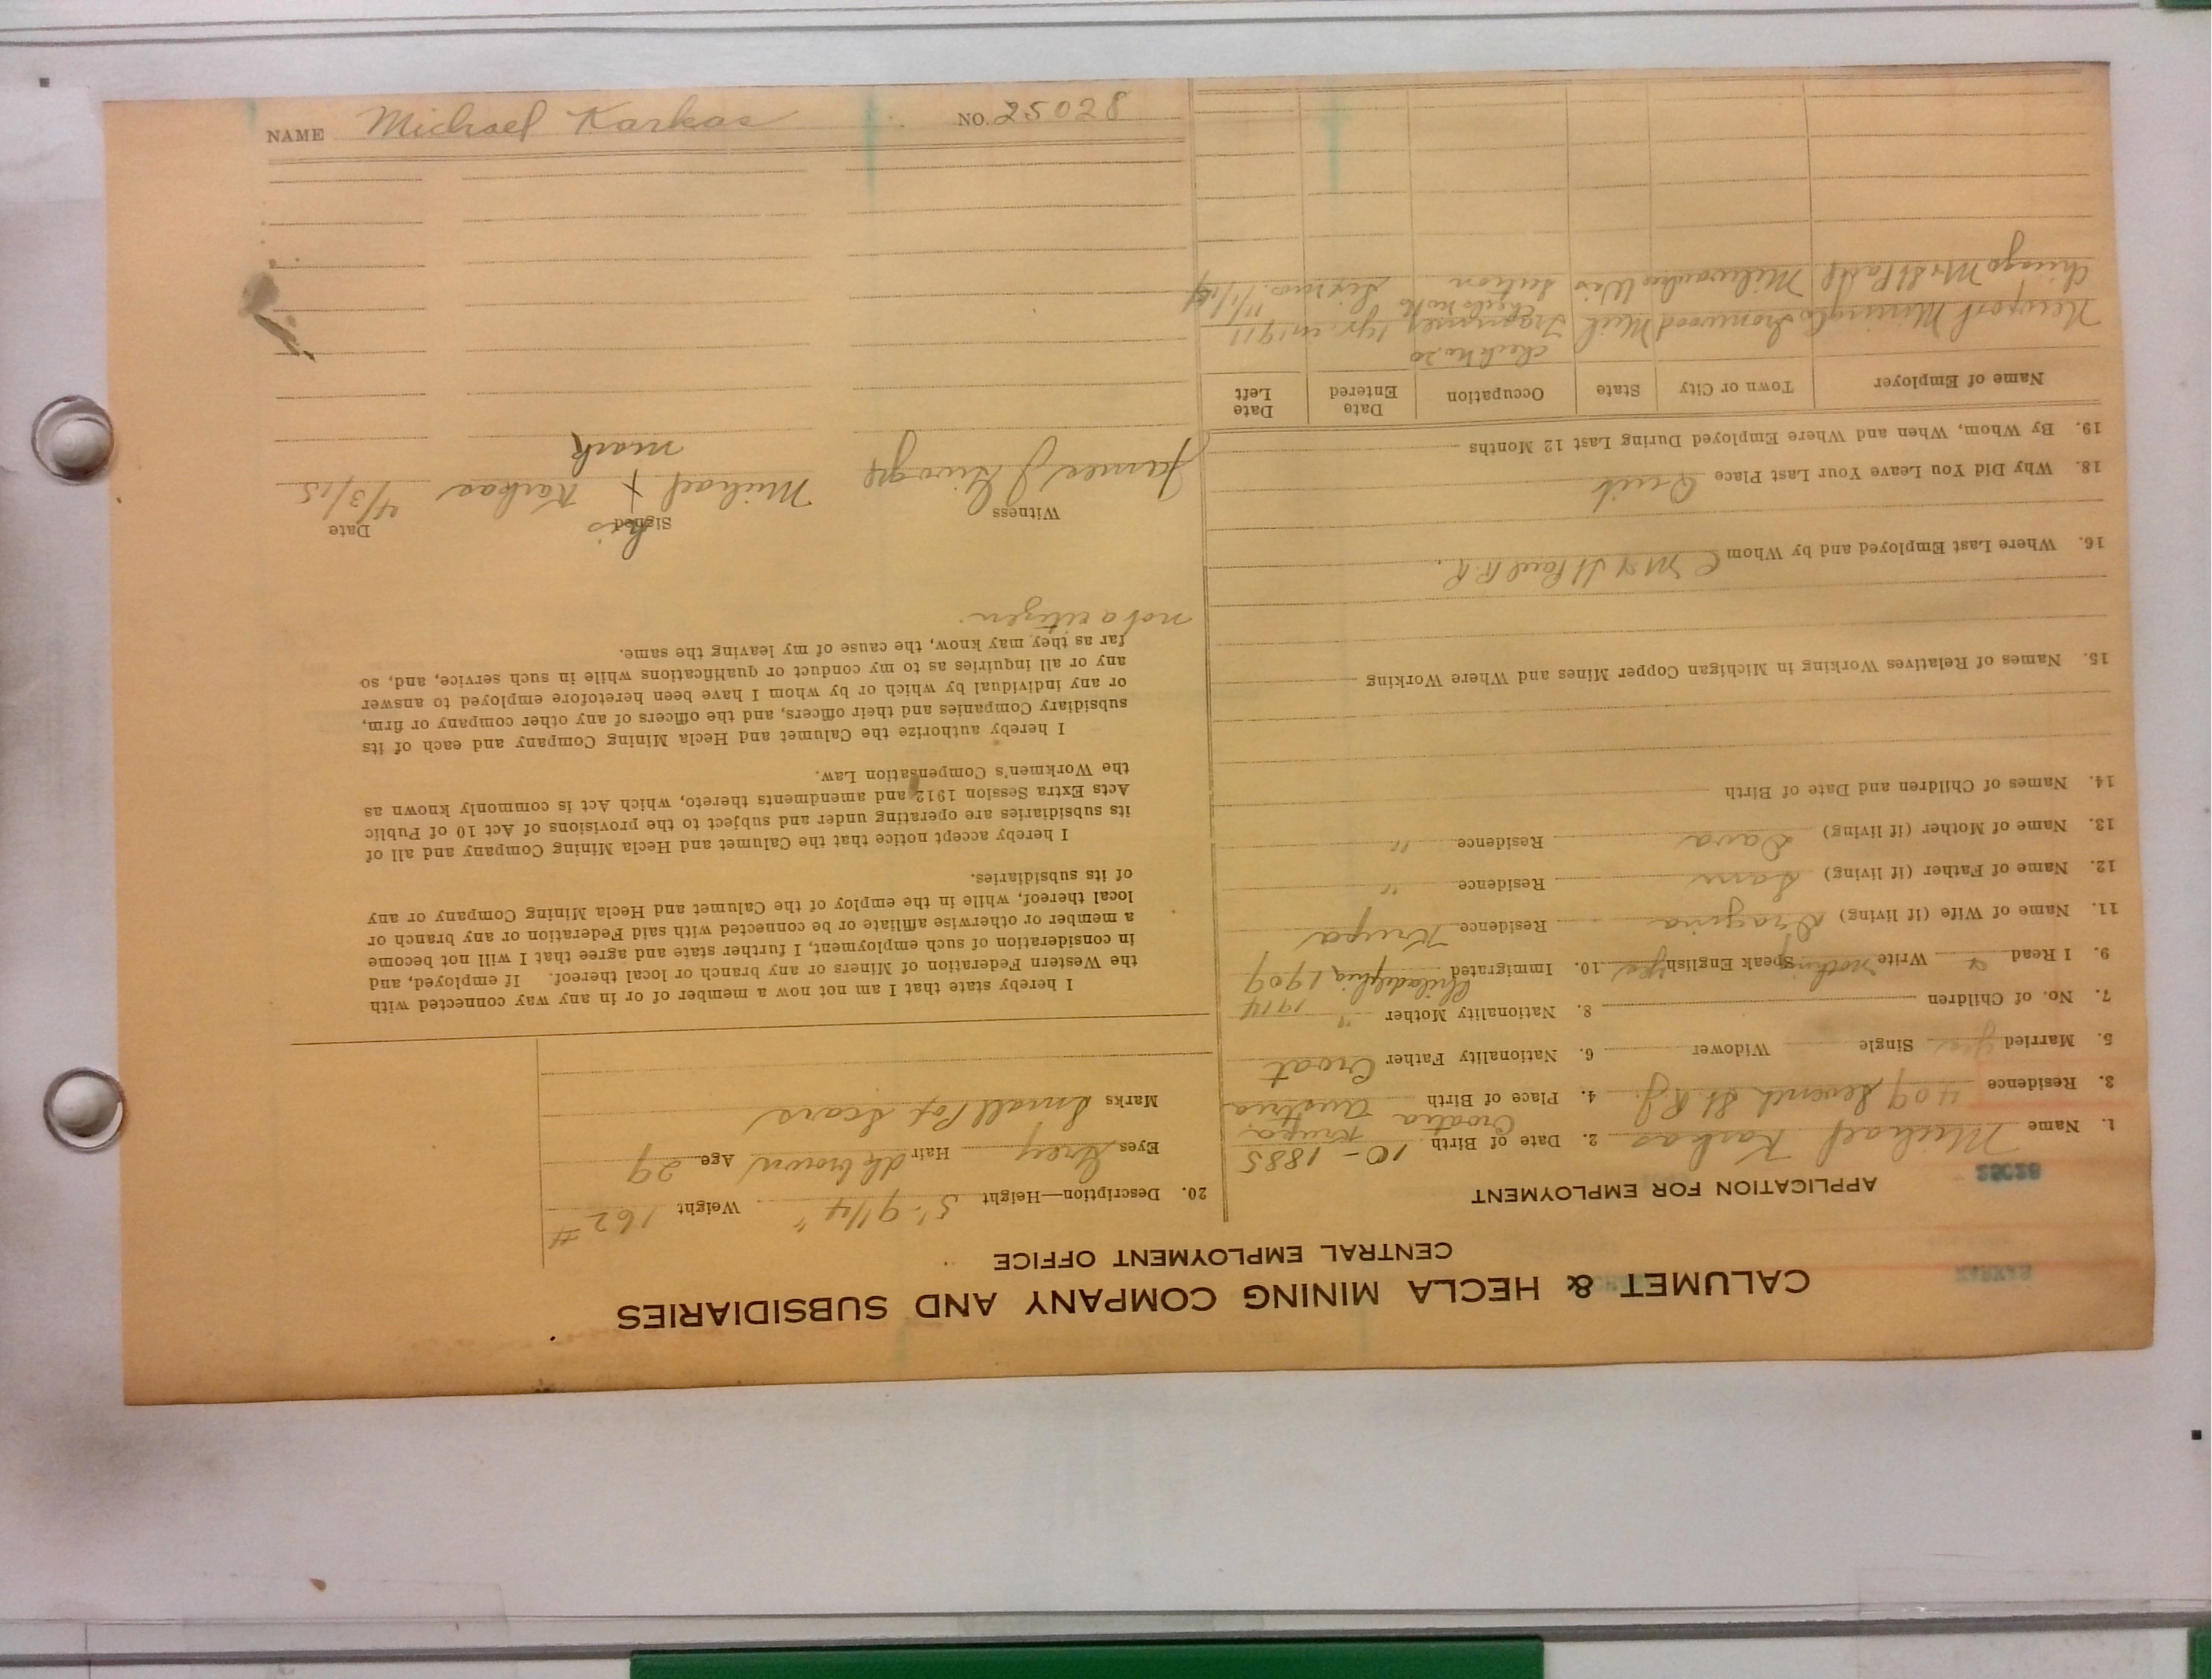 NAME Michael Karkas NO. 25028
CALUMET & HECLA MINING COMPANY AND SUBSIDIARIES
CENTRAL EMPLOYMENT OFFICE
25028
APPLICATION FOR EMPLOYMENT
1. Name Michael Karkas 2. Date of Birth 10 - 1885
Krupa
Croatia
3. Residence 409 Seventh St R.J. 4. Place of Birth Austria
5. Married yes Single Widower 6. Nationality Father Croat
7. No. of Children 8. Nationality Mother " 1914
9. I Read & Write nothing Speak English yes 10. Immigrated Philadelphia 1909
11. Name of Wife (if living) Dragina Residence Krupa
12. Name of Father (if living) Residence "
13. Name of Mother (if living) Sava Residence "
14. Names of Children and Date of Birth
15. Names of Relatives Working in Michigan Copper Mines and Where Working
16. Where Last Employed and by Whom C M & St Paul R.R.
18. Why Did You Leave Your Last Place Quit
19. By Whom, When and Where Employed During Last 12 Months
Name of Employer Town or City State Occupation Date Entered Date Left
Check No. 20
Newport Mining Co Ironwood Mich Trammer 1 yr. in 1911
Check No
Chicago M & St Paul Milwaukee Wis Section Six mos. 11/1/14
20. Description—Height 5' 9 1/4" Weight 162 #
Eyes Grey Hair dk brown Age 29
Marks Small Pox Scars
I hereby state that I am not now a member of or in any way connected with
the Western Federation of Miners or any branch or local thereof. If employed, and
in consideration of such employment, I further state and agree that I will not become
a member or otherwise affiliate or be connected with said Federation or any branch or
local thereof, while in the employ of the Calumet and Hecla Mining Company or any
of its subsidiaries.
I hereby accept notice that the Calumet and Hecla Mining Company and all of
its subsidiaries are operating under and subject to the provisions of Act 10 of Public
Acts Extra Session 1912 and amendments thereto, which Act is commonly known as
the Workmen's Compensation Law.
I hereby authorize the Calumet and Hecla Mining Company and each of its
subsidiary Companies and their officers, and the officers of any other company or firm,
or any individual by which or by whom I have been heretofore employed to answer
any or all inquiries as to my conduct or qualifications while in such service, and, so
far as they may know, the cause of my leaving the same.
not a citizen.
Witness Signed Date
his
James J Michael X Karkas 4/3/15
mark